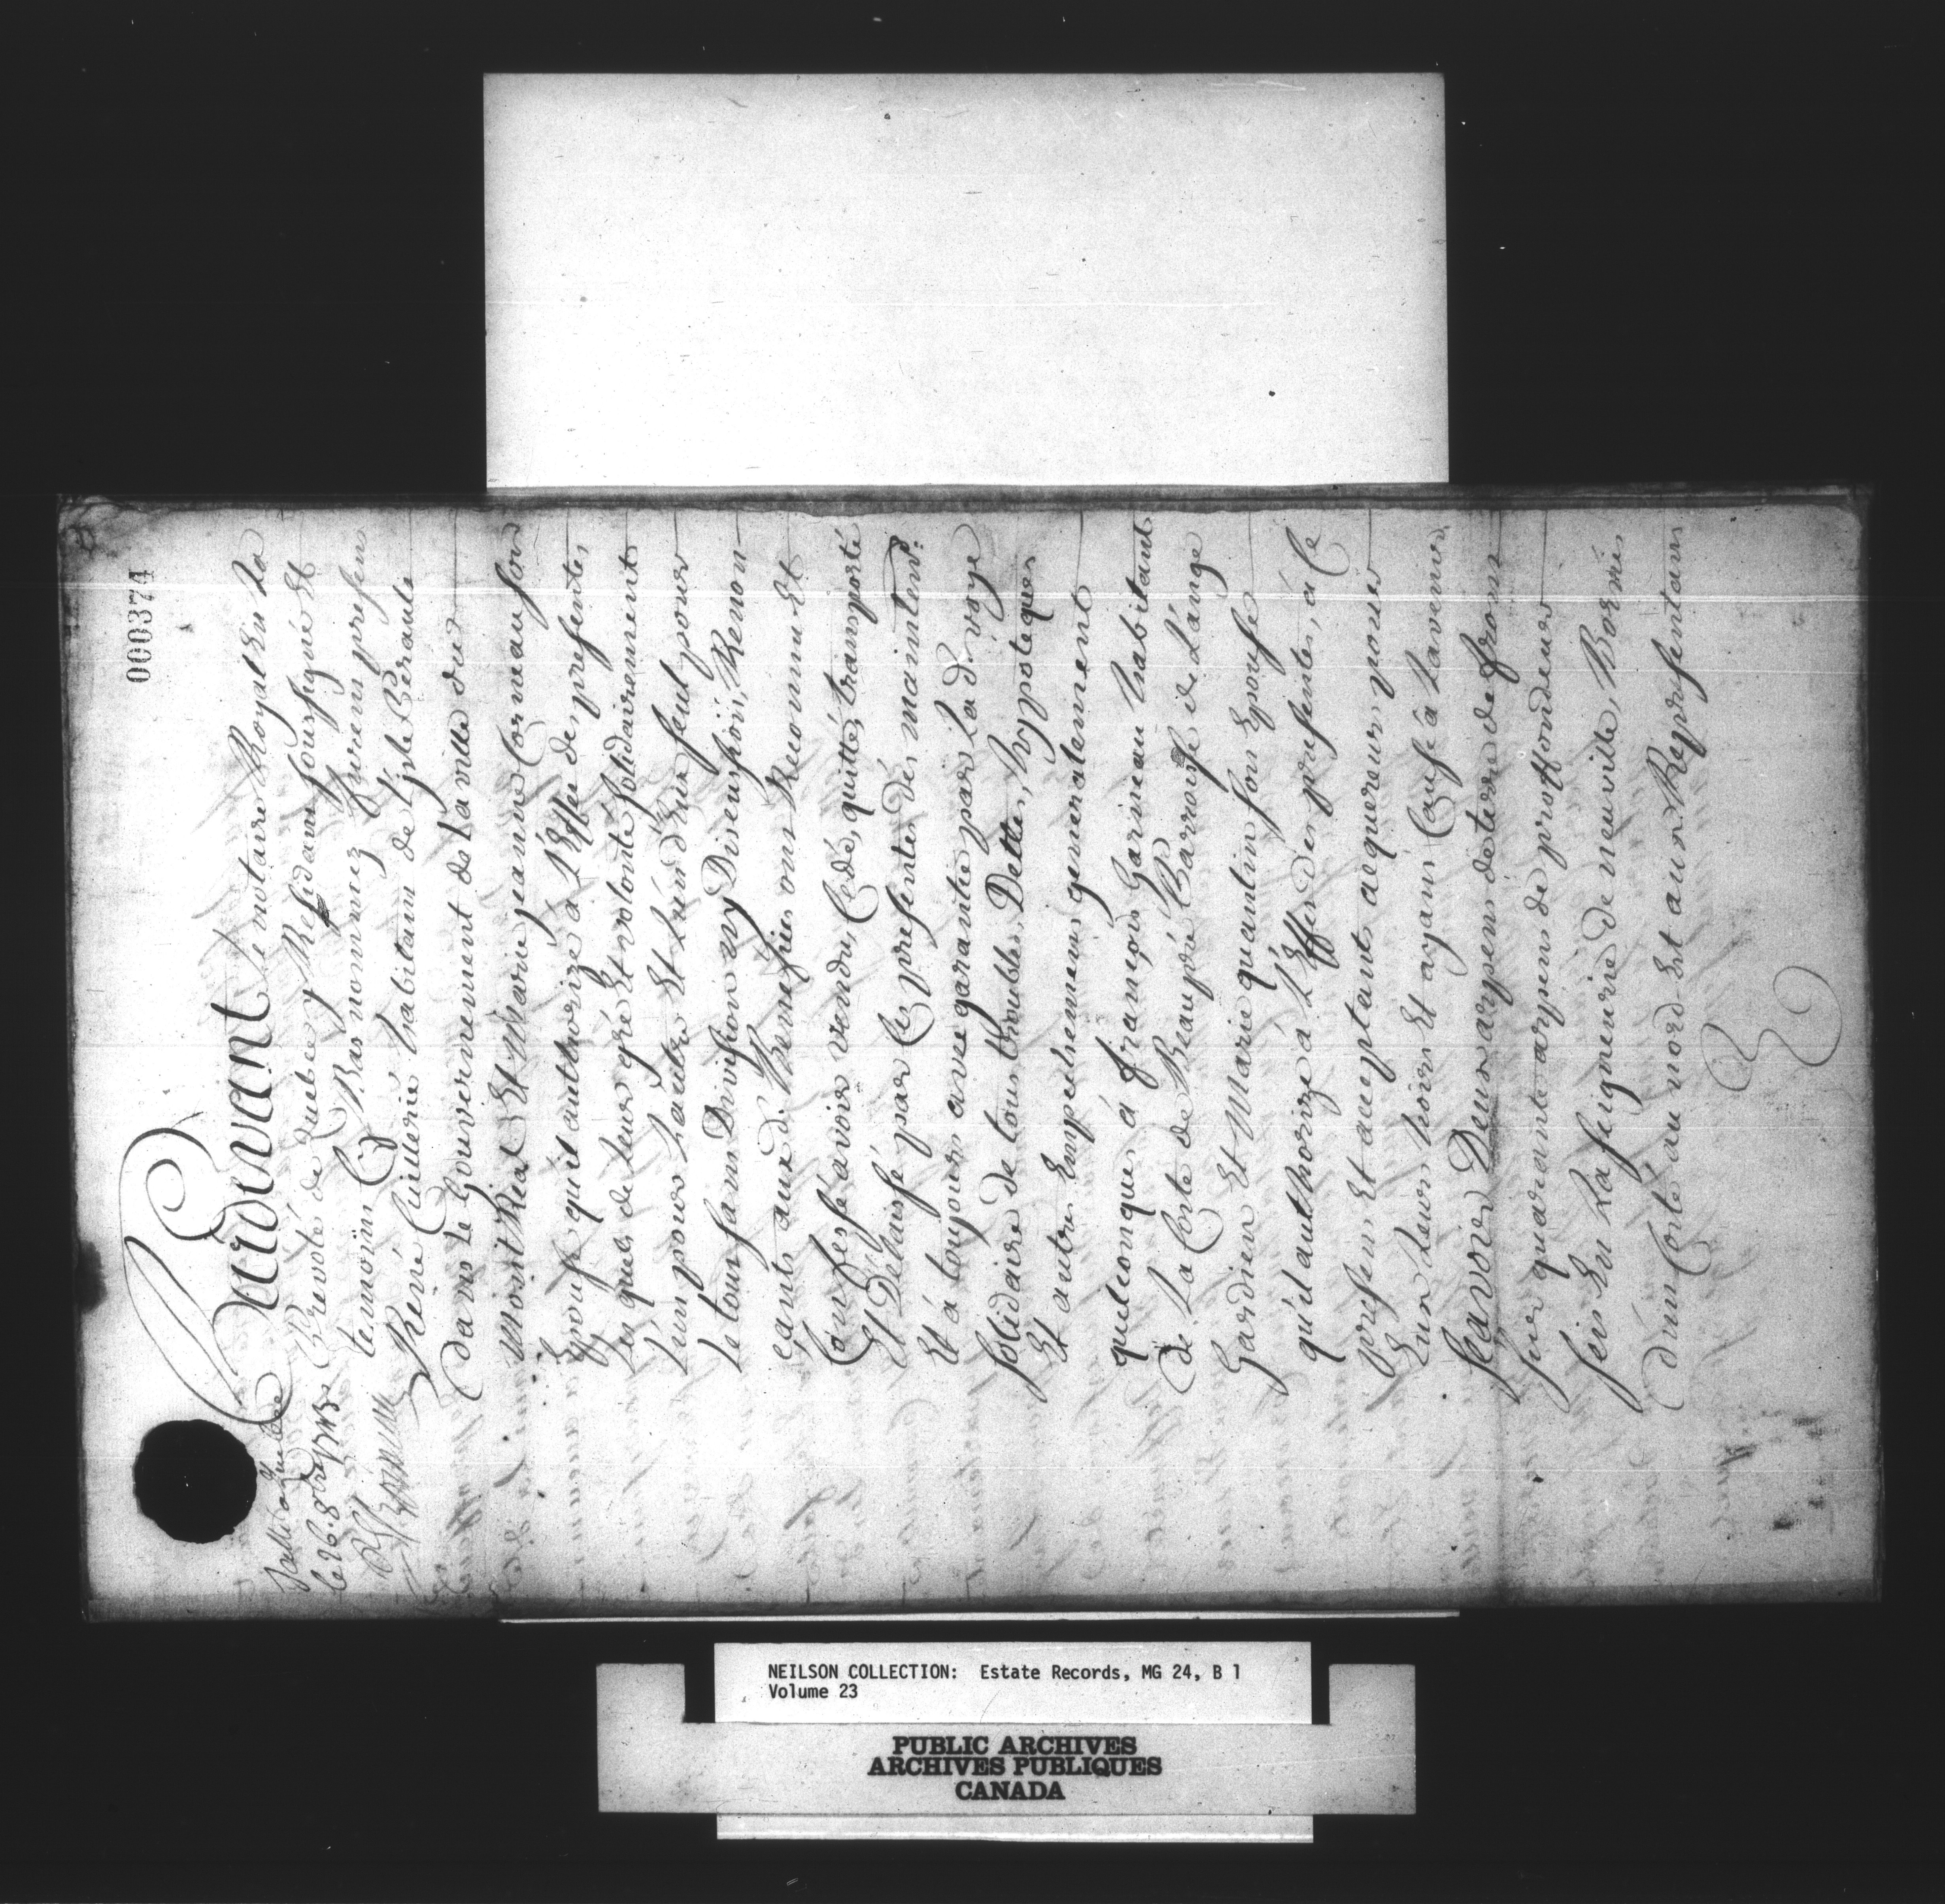 000374
Pardevant Le notaire Royal En La
Prevoté de Quebec y Residant soussigné Et
temoins Cy Bas nommez furent presens
René Cuillerié habitant de L'isle Perault
dans le Gouvernement de La ville du
Mont Real Et Marie jeanne Cormeau son
Epouse qu'il authorize a L'Effet des presentes
Lesquels de leur gré Et volonté solidairement
L'un pour L'autre Et L'un d'eux seul pour
Le tout sans Division ny Discussion, Renon-
çants aux d. Benefices ont Reconnu Et
Confessé avoir vendu, Cedé, quitté, transporté
Et Delaissé par Ces presentes Dés maintent.
Et a toujours avec garantie par La d. voye
solidaire de tous troubles, Dettes, hypoteques
Et autres Empechemens generalement
quelconques á françois Garneau habitant
de La Coste de Beaupré Parroisse de L'ange
Gardien Et Marie quantin son Epouse
qu'il authorize á L'Effet des presentes, a Ce
presens Et acceptants acquereurs pour
Eux Leurs hoirs Et ayans Cause á L'avenir
sçavoir Deux arpens de terre de front
sur quarante arpens de proffondeur
sis En La seigneurie de neuville, Bornés
d'un Costé au nord Est aux Representans
le 26. 8bre
NEILSON COLLECTION: Estate Records, MG 24, B 1
Volume 23
PUBLIC ARCHIVES
ARCHIVES PUBLIQUES
CANADA